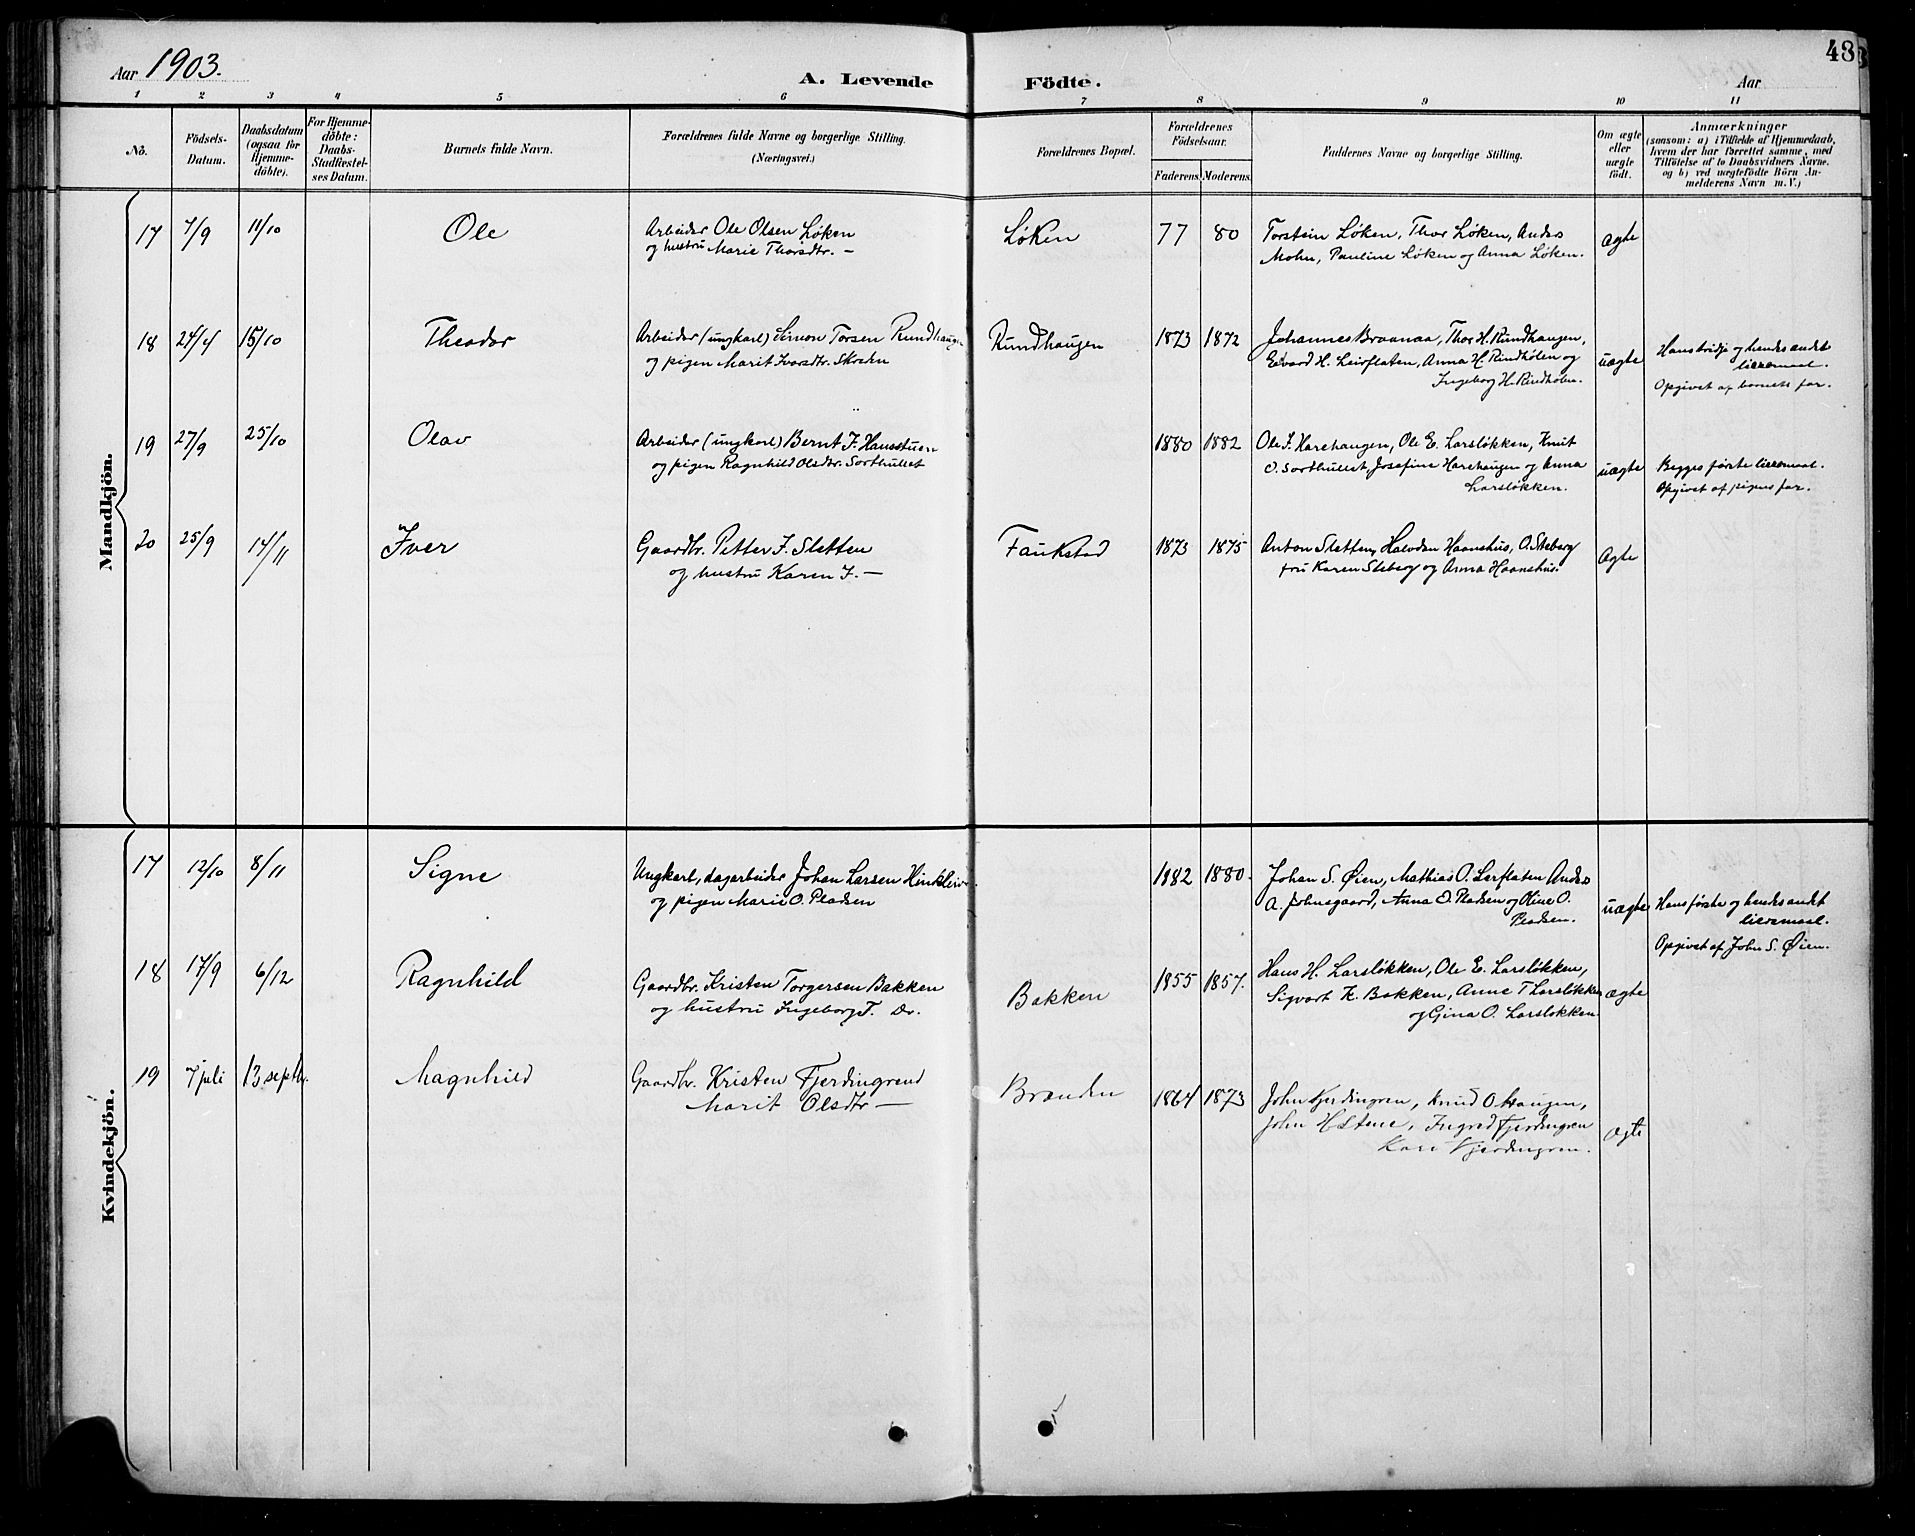 48
Aar 1903.
A. Levende Födte.
Aar
1 2 3 4 5 6 7 8 9 10 11
No.
Födsels-
Datum.
Daabsdatum
(ogsaa for
Hjemme-
döbte).
For Hjemme-
döbte:
Daabs-
Stadfæstel-
ses Datum.
Barnets fulde Navn.
Forældrenes fulde Navne og borgerlige Stilling.
(Næringsvei.)
Forældrenes Bopæl.
Forældrenes
Födselsaar.
Faderens. Moderens.
Faddernes Navne og borgerlige Stilling.
Om ægte
eller
uægte
födt.
Anmærkninger
(saasom: a) i Tilfælde af Hjemmedaab,
hvem der har forrettet samme, med
Tilföielse af to Daabsvidners Navne.
og b) ved uægtefödte Börn An-
melderens Navn m.V.)
Mandkjön.
17 7/9 11/10 Ole
Arbeider Ole Olsen Løken
og hustru Marie Thorsdtr. —
Løken 77 80
Torstein Løken, Thor Løken, Anders
Mohn, Pauline Løken og Anna Løken.
ægte
18 24/4 15/10 Theodor
Arbeider (ungkarl) Simon Torsen Rundhaugen
og pigen Marit Iversdtr. Skoden
Rundhaugen 1873 1872
Johannes Braanaa, Thor H. Rundhaugen,
Edvard H. Leirflaten, Anna H. Rindhølen og
Ingeborg H. Rindhølen.
uægte
Hans tridje og hendes andet
lieremaal.
Opgivet af barnets far.
19 27/9 25/10 Olav
Arbeider (ungkarl) Bernt J. Hausstuen
og pigen Ragnhild Olsdtr. Sorthullet
1880 1882
Ole J. Harehaugen, Ole E. Larsløkken, Knut
O. Sorthullet, Josefine Harehaugen og Anna
Larsløkken.
uægte
Begges første lieremaal.
Opgivet af pigens far.
20 25/9 14/11 Iver
Gaardbr. Petter J. Sletten
og hustru Karen J. —
Faukstad 1873 1875
Anton Sletten, Halvdan Haanshus, O. Steberg
fru Karen Steberg og Anna Haanshus.
Ægte
Kvindekjön.
17 12/10 8/11 Signe
Ungkarl, dagarbeider Johan Larsen Hinkleiv.
og pigen Marie O. Pladsen
1882 1880.
Johan S. Øien, Mathias O. Lerflaten Anders
A. Johnsgaard, Anna O. Pladsen og Oline O.
Pladsen.
uægte
Hans første og hendes andet
lieremaal.
Opgivet af John S. Øien.
18 17/9 6/12 Ragnhild
Gaardbr. Kristen Torgersen Bakken
og hustru Ingeborg T. Dr.
Bakken 1855 1857.
Hans H. Larsløkken, Ole E. Larsløkken,
Sigvart K. Bakken, Anne T Larsløkken
og Gina O. Larsløkken.
ægte
19 7 juli 13 septbr. Magnhild
Gaardbr. Kristen Fjerdingrend
Marit Olsdtr —
Branden 1864 1873
John Fjerdingren, Knud O. Haugen,
John H Stene, Ingrid Fjerdingren
Kari Fjerdingren.
ægte